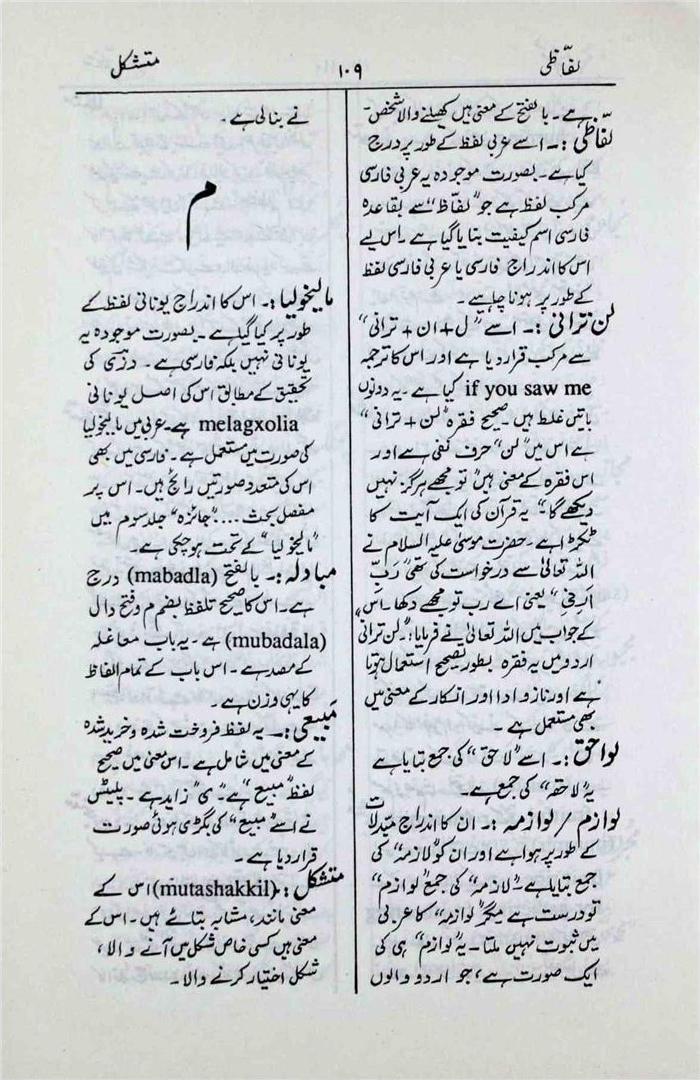 لفّاظی
۱۰۹
متشکل
ہے۔ بالفتح کے معنی ہیں کھیلنے والا شخص۔
لفّاظی :۔ اسے عربی لفظ کے طور پر درج
کیا ہے۔ بصورت موجودہ یہ عربی فارسی
مرکب لفظ ہے جو "لفّاظ" سے بقاعدہ
فارسی اسم کیفیت بنایا گیا ہے۔ اس لیے
اس کا اندراج فارسی یا عربی فارسی لفظ
کے طور پر ہونا چاہیے۔
لن ترانی :۔ اسے "ل + ان + ترانی"
سے مرکب قرار دیا ہے اور اس کا ترجمہ
if you saw me کیا ہے۔ یہ دونوں
باتیں غلط ہیں۔ صحیح فقرہ "لن + ترانی"
ہے اس میں "لن" حرف نفی ہے اور
اس فقرہ کے معنی ہیں "تو مجھے ہرگز نہیں
دیکھے گا"۔ یہ قرآن کی ایک آیت کا
ٹکڑا ہے۔ حضرت موسیٰ علیہ السلام نے
اللہ تعالیٰ سے درخواست کی تھی "رَبِّ
اَرِنِی" یعنی اے رب تو مجھے دکھا۔ اس
کے جواب میں اللہ تعالیٰ نے فرمایا: "لن ترانی"
اردو میں یہ فقرہ بطور تصحیح استعمال ہوتا
ہے اور ناز و ادا اور انکار کے معنی میں
بھی مستعمل ہے۔
لواحق :۔ اسے "لاحق" کی جمع بتایا ہے
یہ "لاحقہ" کی جمع ہے۔
لوازم / لوازمہ :۔ ان کا اندراج مبدلات
کے طور پر ہوا ہے اور ان کو "لازمہ" کی
جمع بتایا ہے۔ "لازمہ" کی جمع "لوازم"
تو درست ہے مگر "لوازمہ" کا عربی
میں ثبوت نہیں ملتا۔ یہ "لوازم" ہی کی
ایک صورت ہے، جو اردو والوں
نے بنالی ہے۔
م
مالیخولیا :۔ اس کا اندراج یونانی لفظ کے
طور پر کیا گیا ہے۔ بصورت موجودہ یہ
یونانی نہیں بلکہ فارسی ہے۔ درزی کی
تحقیق کے مطابق اس کی اصل یونانی
melagxolia ہے۔ عربی میں مالیخولیا
کی صورت میں مستعمل ہے۔ فارسی میں بھی
اس کی متعدد صورتیں رائج ہیں۔ اس پر
مفصل بحث .... "جائزہ" جلد سوم میں
"مالیخولیا" کے تحت ہو چکی ہے۔
مبادلہ :۔ بالفتح (mabadla) درج
ہے۔ اس کا صحیح تلفظ بضم م و فتح دال
(mubadala) ہے۔ یہ باب مفاعلہ
کے مصدر ہے۔ اس باب کے تمام الفاظ
کا یہی وزن ہے۔
مَبیعی :۔ یہ لفظ فروخت شدہ و خرید شدہ
کے معنی میں شامل ہے۔ اس معنی میں صحیح
لفظ "مبیع" ہے۔ "ی" زاید ہے۔ پلیٹس
نے اسے "مبیع" کی بگڑی ہوئی صورت
قرار دیا ہے۔
متشکل :۔ (mutashakkil) اس کے
معنی مانند، مشابہ بتائے ہیں۔ اس کے
معنی ہیں کسی خاص شکل میں آنے والا،
شکل اختیار کرنے والا۔